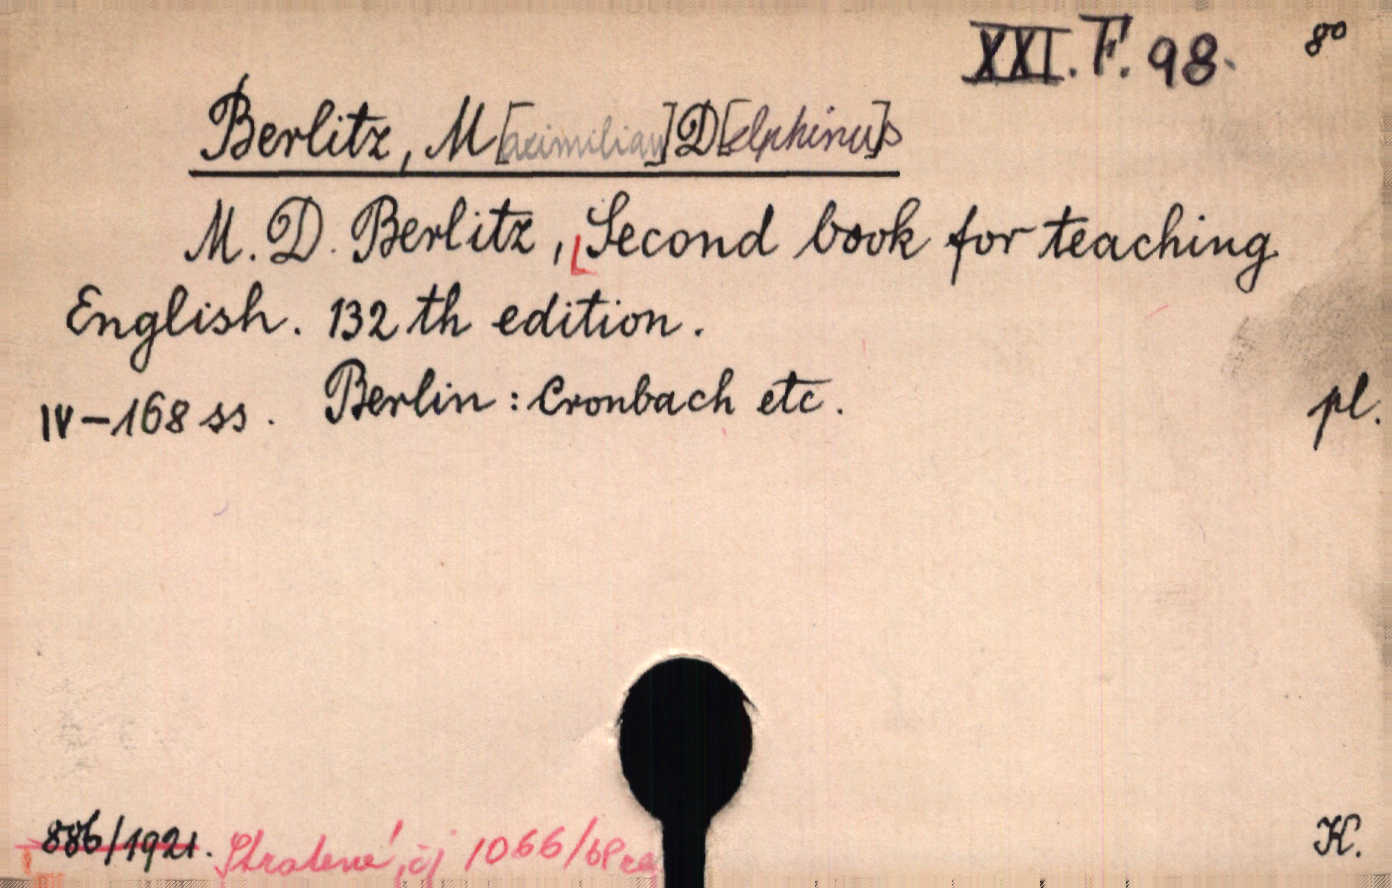 XXI. F. 98. 8°
Berlitz, M[aximilian] D[elphinu]s
M. D. Berlitz, Second book for teaching
English. 132 th edition.
Berlin: Cronbach etc.
IV-168 ss. pl.
886/1921. Stratené, čj 1066/6
K.